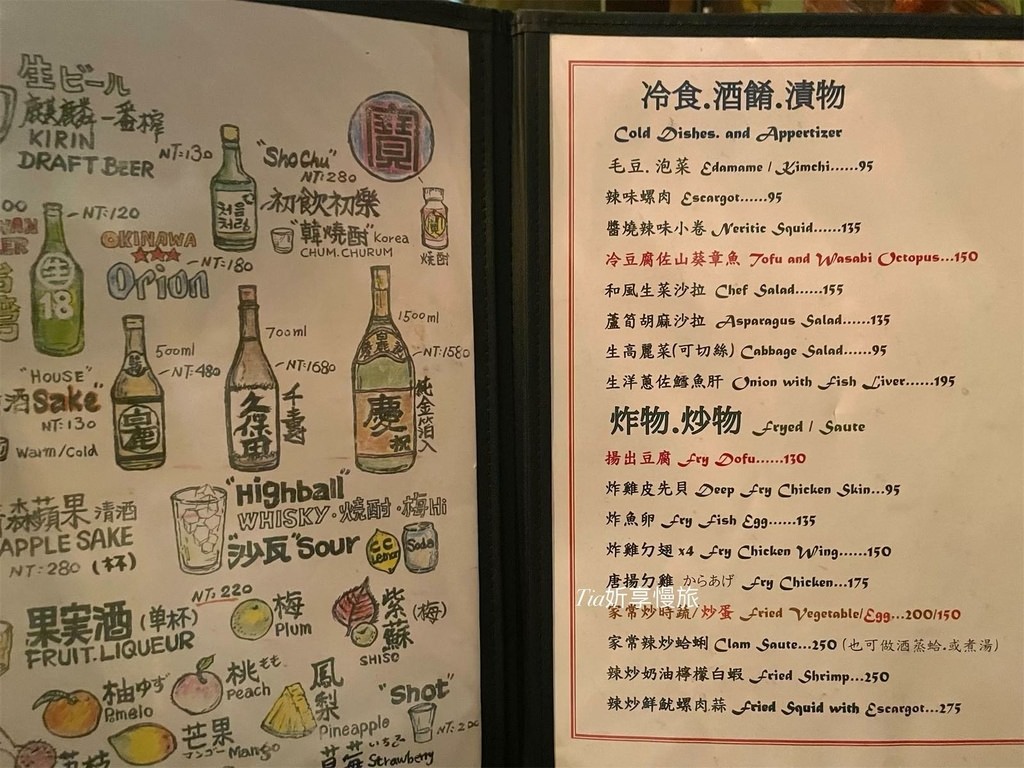 生ビール
麒麟一番搾
KIRIN
DRAFT BEER
NT:130
"ShoChu"
NT:280
寶
初飲初樂
"韓燒酎" Korea
CHUM.CHURUM
처음처럼
焼酎
NT:120
生
18
OKINAWA
Orion
NT:180
500ml
NT:480
700ml
NT:1680
1500ml
NT:1580
"HOUSE"
酒 Sake"
NT:130
Warm/Cold
白鹿
久保田
千壽
慶祝
純金箔入
森蘋果 清酒
APPLE SAKE
NT:280 (杯)
"Highball"
WHISKY·燒酎·梅Hi
"沙瓦" Sour
Lemon
Soda
NT:220
果実酒 (单杯)
FRUIT.LIQUEUR
梅
Plum
紫蘇 (梅)
SHISO
柚ゆず
Pomelo
桃もも
Peach
鳳梨
Pineapple
"Shot"
芒果
マンゴー Mango
草莓 いちご
Strawberry
冷食.酒餚.漬物
Cold Dishes. and Appertizer
毛豆. 泡菜 Edamame / Kimchi......95
辣味螺肉 Escargot......95
醬燒辣味小卷 Neritic Squid......135
冷豆腐佐山葵章魚 Tofu and Wasabi Octopus...150
和風生菜沙拉 Chef Salad......155
蘆筍胡麻沙拉 Asparagus Salad......135
生高麗菜(可切絲) Cabbage Salad......95
生洋蔥佐鱈魚肝 Onion with Fish Liver......195
炸物.炒物 Fryed / Saute
揚出豆腐 Fry Dofu......130
炸雞皮先貝 Deep Fry Chicken Skin...95
炸魚卵 Fry Fish Egg......135
炸雞勿翅 x4 Fry Chicken Wing......150
唐揚勿雞 からあげ Fry Chicken...175
Tia妡享慢旅
家常炒時蔬/炒蛋 Fried Vegetable/Egg...200/150
家常辣炒蛤蜊 Clam Saute...250 (也可做酒蒸蛤.或煮湯)
辣炒奶油檸檬白蝦 Fried Shrimp...250
辣炒鮮魷螺肉蒜 Fried Squid with Escargot...275